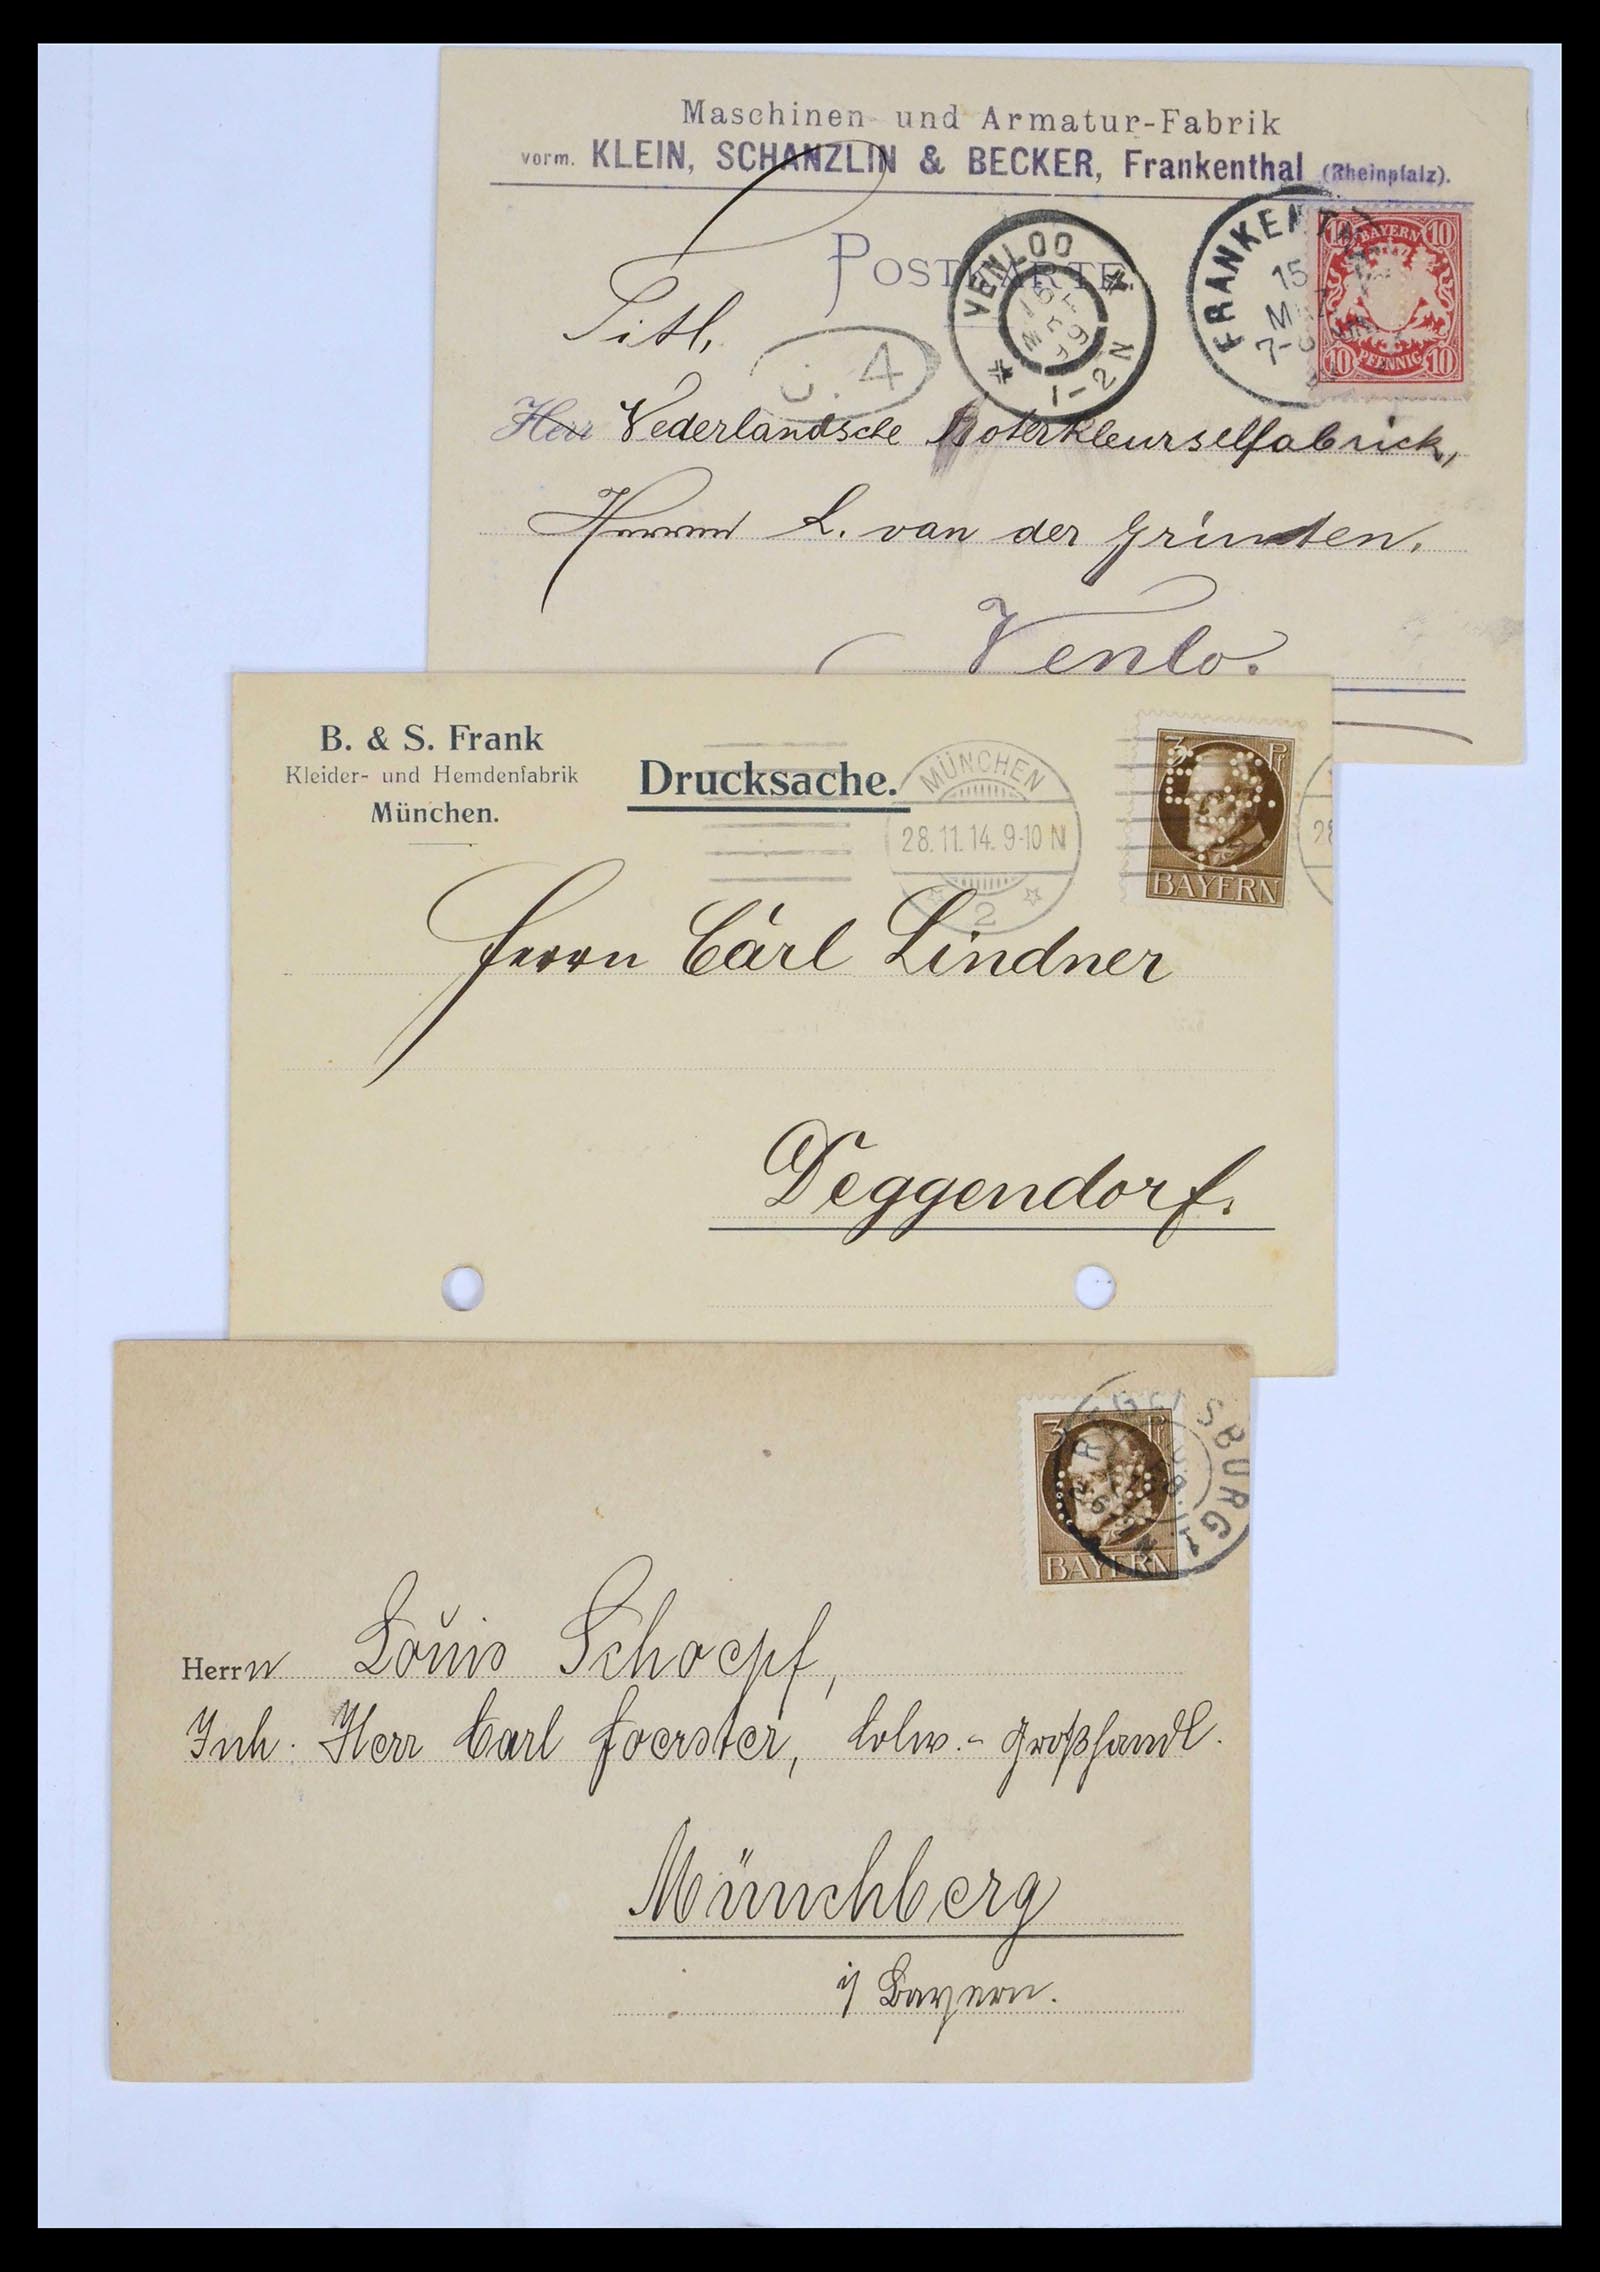 Maschinen- und Armatur-Fabrik
vorm. KLEIN, SCHANZLIN & BECKER, Frankenthal (Rheinpfalz).
POSTKARTE.
VENLOO
1-2 N
FRANKENTHAL
15
MRZ
7-8
10 BAYERN 10
10 PFENNIG 10
Titl.
4
Herr Nederlandsche Boterkleurselfabrick,
Herren L. van der Grinten.
Venlo.
B. & S. Frank
Kleider- und Hemdenfabrik
München.
Drucksache.
MÜNCHEN
28.11.14. 9-10 N
2
28
3 Pf
BAYERN
Herrn Carl Lindner
Deggendorf.
3 Pf
BAYERN
REGENSBURG 1
Herrn Louis Schoepf,
Inh. Herr Carl Foerster, Kolw.- Großhandl.
Münchberg
i/ Bayern.